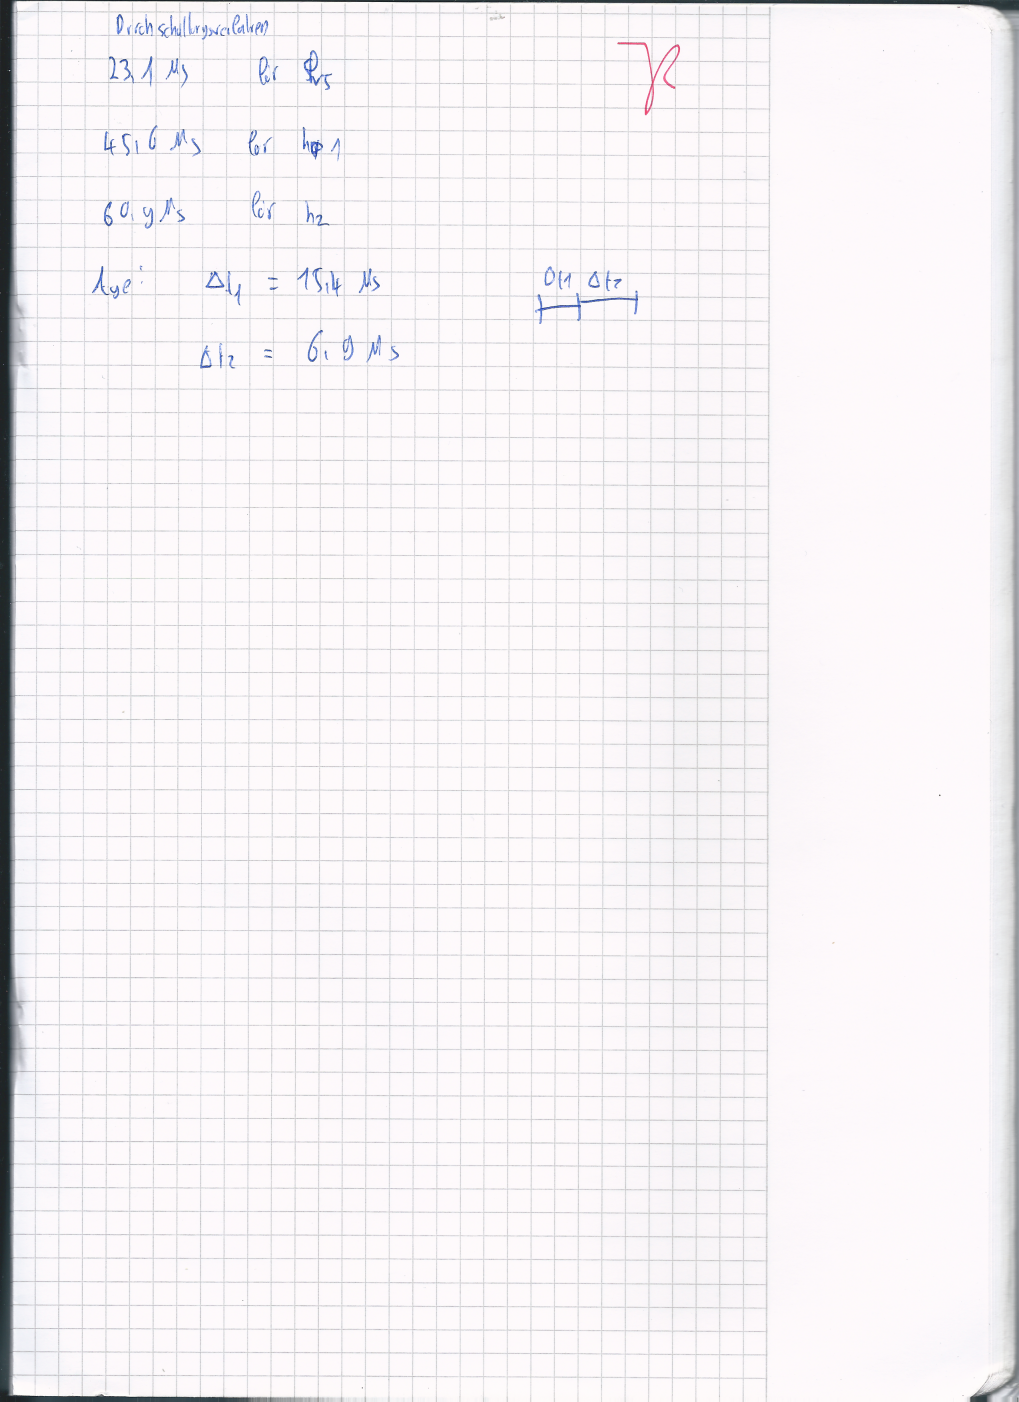 Durchschallungsverfahren
23,1 µs für h5
45,6 µs für h1
60,9 µs für h2
Auge: Δt1 = 15,4 µs
Δt1 Δt2
Δt2 = 6,9 µs